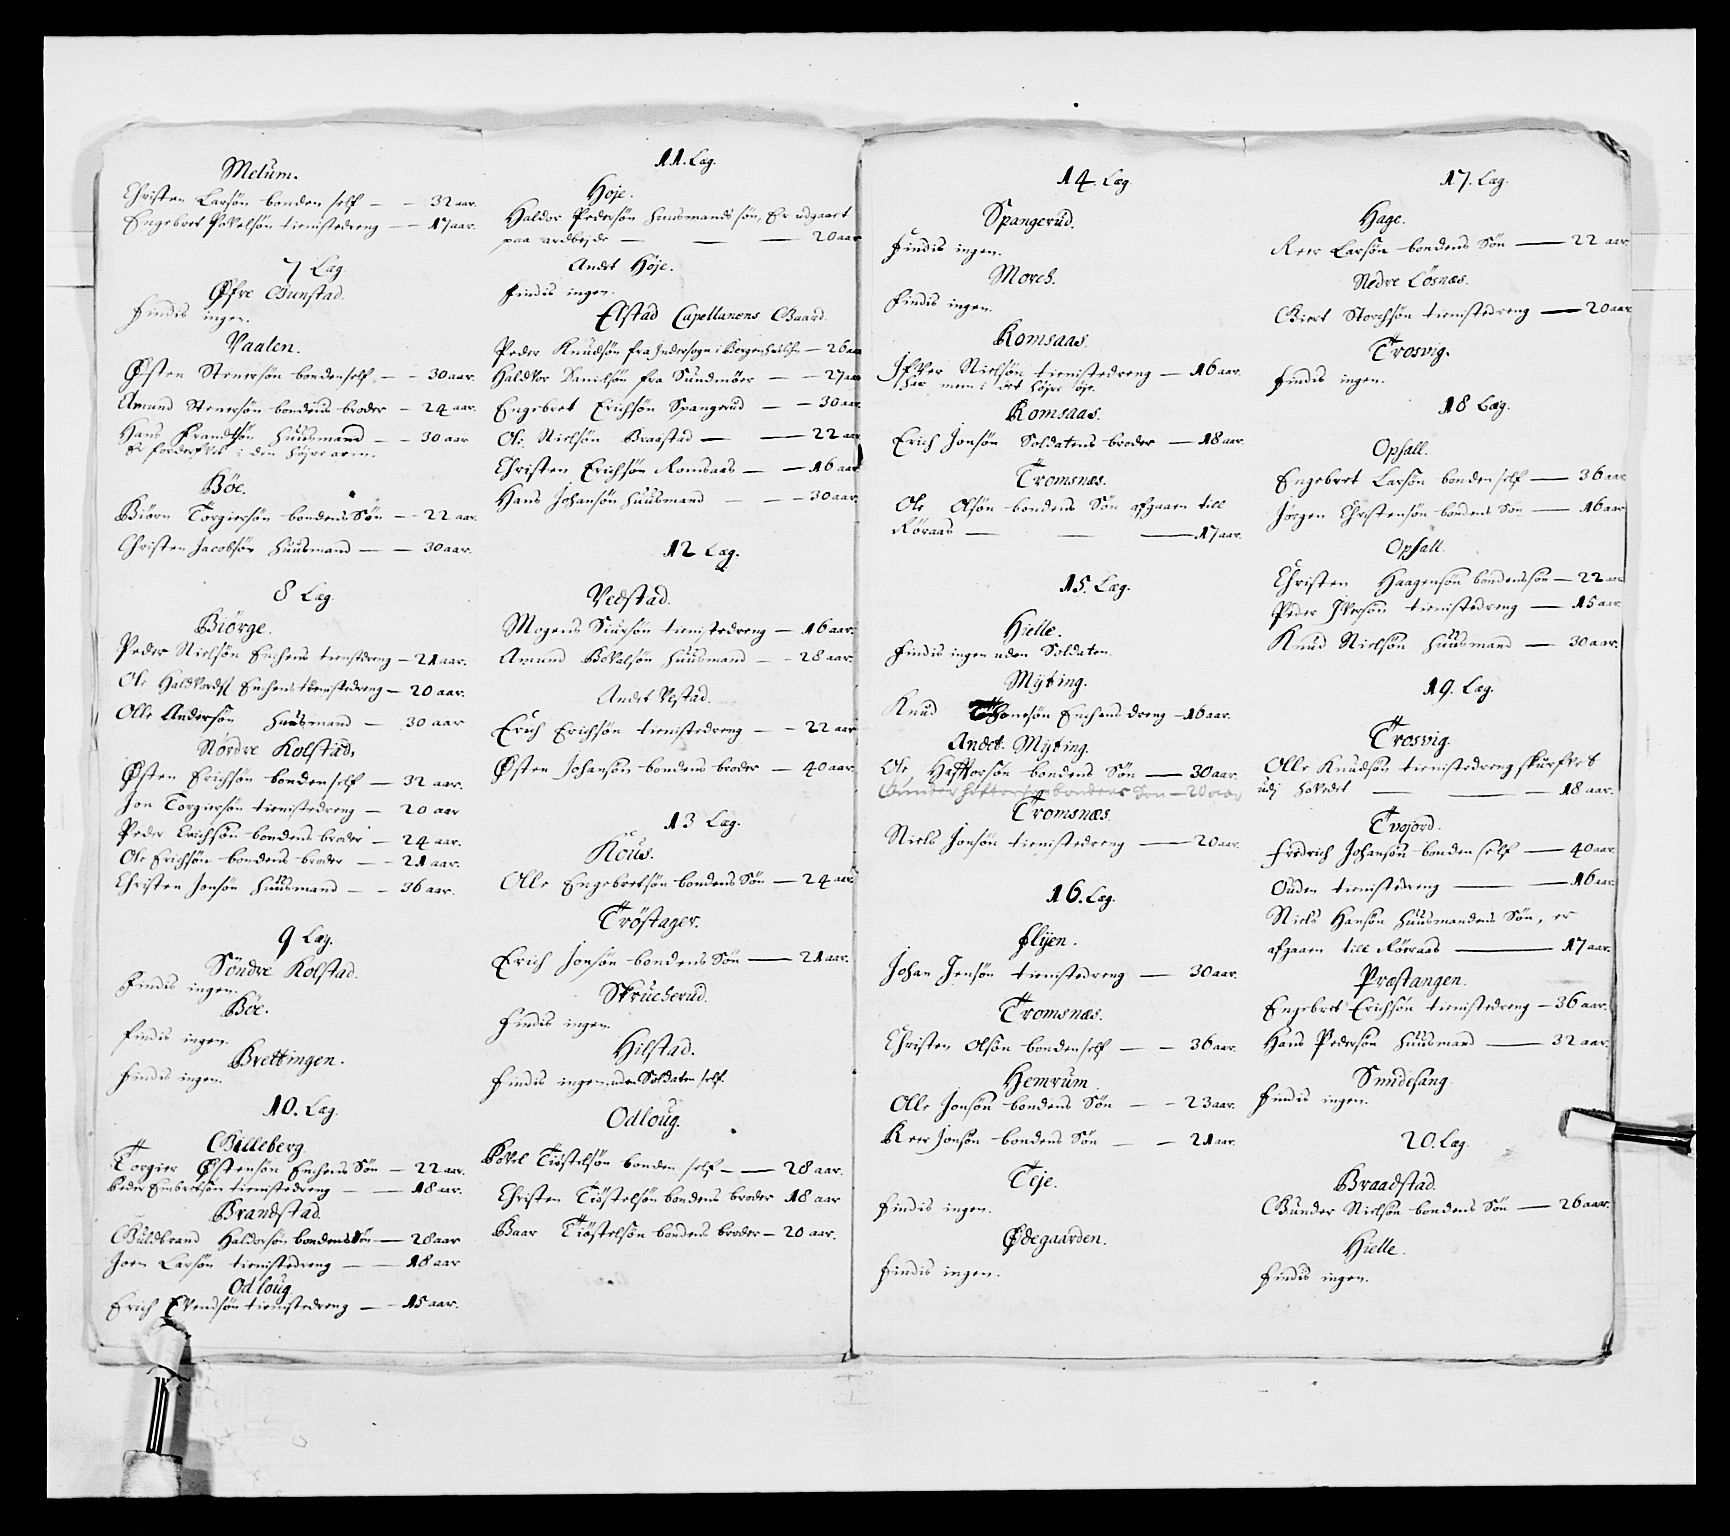 Melum.
Christen Larsön bonden self — — 32 aar.
Engebret Povelsön tienistedreng — — 17 aar.
7 Læg
Øfre Gunstad.
Findis ingen.
Vaalen.
Østen Stenersön bonden self — — 30 aar.
Amund Stenersön bondens broder — 24 aar.
Hans Frandtsön Huusmand — — 30 aar
er forderfvet i den höjre arm.
Böe.
Biörn Torgiersön bondens Sön — — 22 aar.
Christen Jacobsön Huusmand — — 30 aar.
8 Læg
Biörge.
Peder Nielsön Enchens tienistdreng — 21 aar.
Ole Haldvords: Enchens tienistedreng — 20 aar.
Olle Andersön Huusmand — 30 aar
Nördre Kolstad.
Østen Erichsön bonden self — 32 aar.
Jon Torgiersön tienistedreng — 20 aar
Peder Erichsön bondens broder — 24 aar.
Ole Erichsön bondens broder — — 21 aar.
Christen Jonsön Huusmand — — 36 aar.
9 Læg.
Söndre Kolstad.
Findis ingen.
Böe.
Findis ingen.
Brettingen.
Findis ingen.
10. Læg.
Gilleberg
Torgier Østensön Enchens Sön — 22 aar.
Peder Embretsön tienistedreng — — 18 aar.
Brandstad.
Guldbrand Haldorsön bondens Sön — 28 aar
Joen Larsön tienistedreng — — 18 aar
Odloug
Erich Evensön tienistedreng — — 15 aar.
11. Læg.
Høje.
Haldor Pedersön Huusmands sön, Er udgaaet
paa ardbejde — — — 20 aar
Andet Höje.
Findis ingen.
Elstad Capellanens Gaard.
Peder Knudsön fra Indersogn i Bergenhuus — 26 aar
Haldvor Danilsön fra Sundmöer — — 27 aar
Engebret Erichsön Spangerud — — 30 aar.
Ole Nielsön Braastad — — 22 aar
Christen Erichsön Romsaas — — 16 aar
Hans Johansön Huusmand — — — 30 aar.
12 Læg.
Vedstad.
Mogens Siursön tienistedreng — 16 aar.
Amund Bovelsön Huusmand — — 28 aar.
Andet Vestad.
Erich Erichsön tienistedreng — — 22 aar
Østen Johansön bondens broder — 40 aar.
13 Læg.
Kous.
Olle Engebretsön bondens Sön — 24 aar.
Tröstager.
Erich Jonsön bondens Sön — 21 aar.
Skrucherud.
Findis ingen.
Hilstad.
Findis ingen uden Soldaten self.
Odloug.
Povel Tiöstelsön bonden self — — 28 aar.
Christen Tiöstelsön bondens broder 18 aar
Baar Tiöstelsön bondens broder — 20 aar.
14. Læg.
Spangerud.
Findis ingen.
Morch.
Findis ingen.
Romsaas.
Ifver Nielsön tienistedreng — 16 aar.
har meen i det höjre öje.
Romsaas.
Erich Jonsön Soldatens broder — 18 aar.
Tromsnæs.
Ole Olsön bondens Sön afgaaen till
Röraas — — — 17 aar.
15. Læg.
Hielle.
Findis ingen uden Soldaten.
Myting.
Knud Thomesön Enchens dreng — 16 aar.
Andet. Myting.
Ole Hafftorsön bondens Sön — 30 aar.
Gunder Haftorsön bondens Sön — 20 aar
Tromsnæs.
Niels Jonsön tienistedreng — 20 aar.
16. Læg.
Flyen.
Johan Jensön tienistedreng — 30 aar.
Tromsnæs.
Christen Olsön bonden self — — 36 aar.
Hemrum
Olle Jonsön bondens Sön — — 23 aar.
Reer Jonsön bondens Sön — — 21 aar.
Teje.
Findis ingen.
Ødegaarden.
Findis ingen.
17. Læg.
Hage.
Reer Larsön bondens Sön — 22 aar.
Nedre Lösnæs.
Giert Storchsön tienistedreng — 20 aar
Trosvig.
Findis ingen.
18 Læg.
Opsall.
Engebret Larsön bonden self — 36 aar
Jörgen Christensön bondens Sön — 16 aar
Opsall.
Christen Haagensön bondenssön — 22 aar
Peder Iversön tienistedreng — 15 aar.
Knud Nielsön Huusmand — 30 aar.
19. Læg.
Trosvig.
Olle Knudsön tienistedreng skurfvet
udj Hovedet — — — 18 aar.
Tvojord.
Fredrich Johansön bonden self — 40 aar
Ouden tienistedreng — — 16 aar.
Niels Hansön Huusmandens Sön, er
afgaaen till Röeraas — 17 aar.
Præstangen.
Engebret Erichsön tienistedreng — 36 aar.
Hans Pedersön Huusmand — 32 aar.
Sundesang.
Findis ingen.
20. Læg.
Braadstad.
Gunder Nielsön bondens Sön — 26 aar.
Hielle.
Findis ingen.